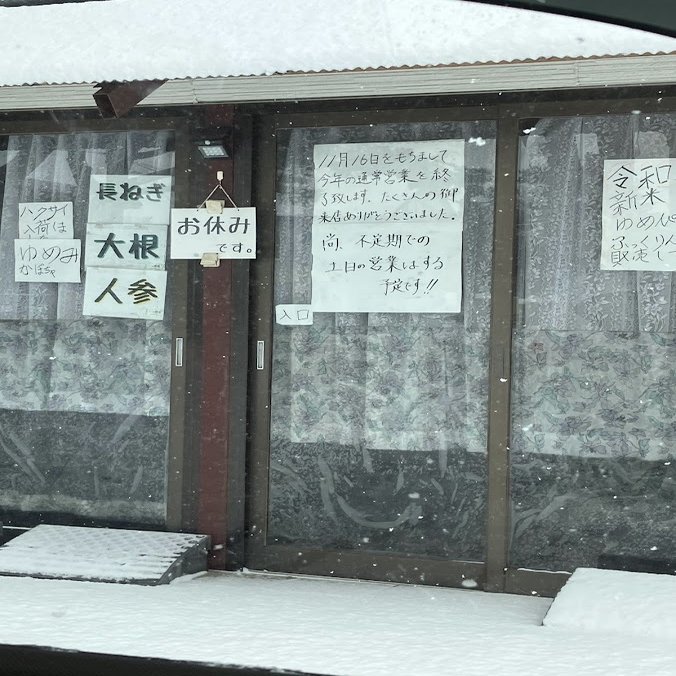 ハクサイ
入荷は
ゆめみ
かぼちゃ
長ねぎ
大根
人参
お休み
です。
11月16日をもちまして
今年の通常営業を終
了致します。たくさんの御
来店ありがとうございました。
尚、不定期での
土日の営業はする
予定です!!
入口
令和
新米
ゆめぴ
ふっくりん
販売し